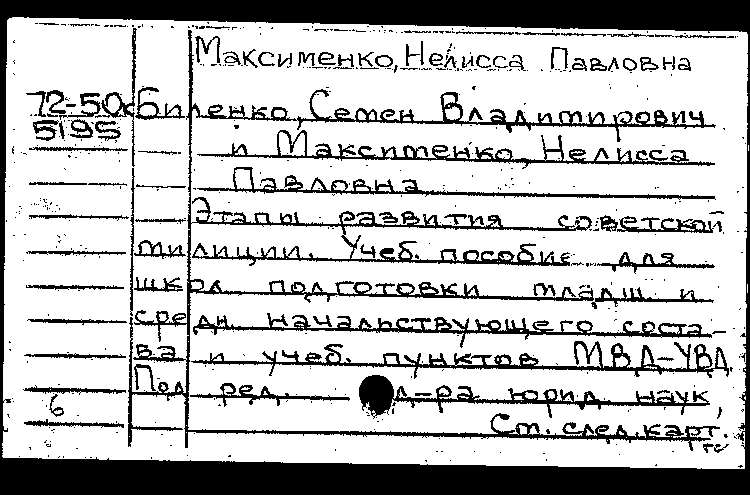 Максименко, Нелисса Павловна
72-50с
5195
Биленко, Семен Владимирович
и Максименко, Нелисса
Павловна
Этапы развития советской
милиции. Учеб. пособие для
школ подготовки младш. и
средн. начальствующего соста-
ва и учеб. пунктов МВД-УВД
Под ред. д-ра юрид. наук,
6
Ст. след. карт.